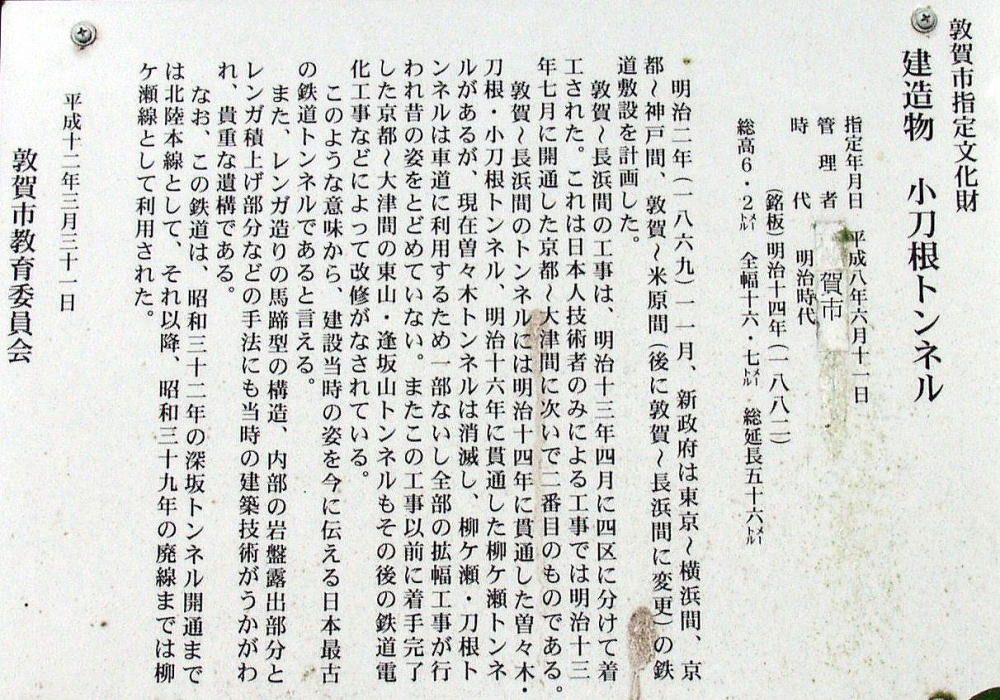 敦賀市指定文化財
建造物　小刀根トンネル
指定年月日　平成八年六月十一日
管理者　賀市
時代　明治時代
（銘板）明治十四年（一八八一）
総高6・2メートル　全幅十六・七メートル　総延長五十六メートル
明治二年（一八六九）一一月、新政府は東京～横浜間、京
都～神戸間、敦賀～米原間（後に敦賀～長浜間に変更）の鉄
道敷設を計画した。
敦賀～長浜間の工事は、明治十三年四月に四区に分けて着
工された。これは日本人技術者のみによる工事では明治十三
年七月に開通した京都～大津間に次いで二番目のものである。
敦賀～長浜間のトンネルには明治十四年に貫通した曽々木・
刀根・小刀根トンネル、明治十六年に貫通した柳ケ瀬トンネ
ルがあるが、現在曽々木トンネルは消滅し、柳ケ瀬・刀根ト
ンネルは車道に利用するため一部ないし全部の拡幅工事が行
われ昔の姿をとどめていない。またこの工事以前に着手完了
した京都～大津間の東山・逢坂山トンネルもその後の鉄道電
化工事などによって改修がなされている。
このような意味から、建設当時の姿を今に伝える日本最古
の鉄道トンネルであると言える。
また、レンガ造りの馬蹄型の構造、内部の岩盤露出部分と
レンガ積上げ部分などの手法にも当時の建築技術がうかがわ
れ、貴重な遺構である。
なお、この鉄道は、昭和三十二年の深坂トンネル開通まで
は北陸本線として、それ以降、昭和三十九年の廃線までは柳
ケ瀬線として利用された。
平成十二年三月三十一日
敦賀市教育委員会